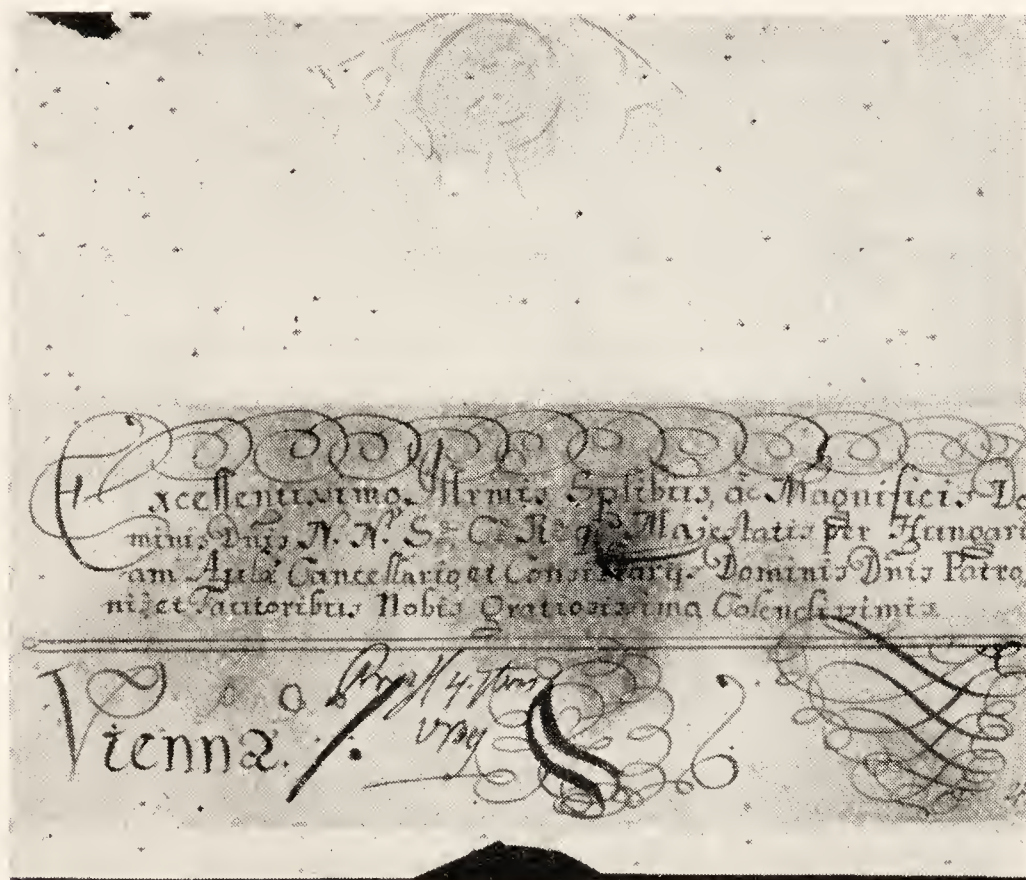 Excellentissimo, Illrmis Splibus, ac Magnificis Do
minis Dnis N. N. S. C. R. q. Majestatis per Hungari
am Aulae Cancellario, et Consiliarijs Dominis Dnis Patro
nis, et Fautoribus Nobis Gratiosissima Colendissimis
Vienna.